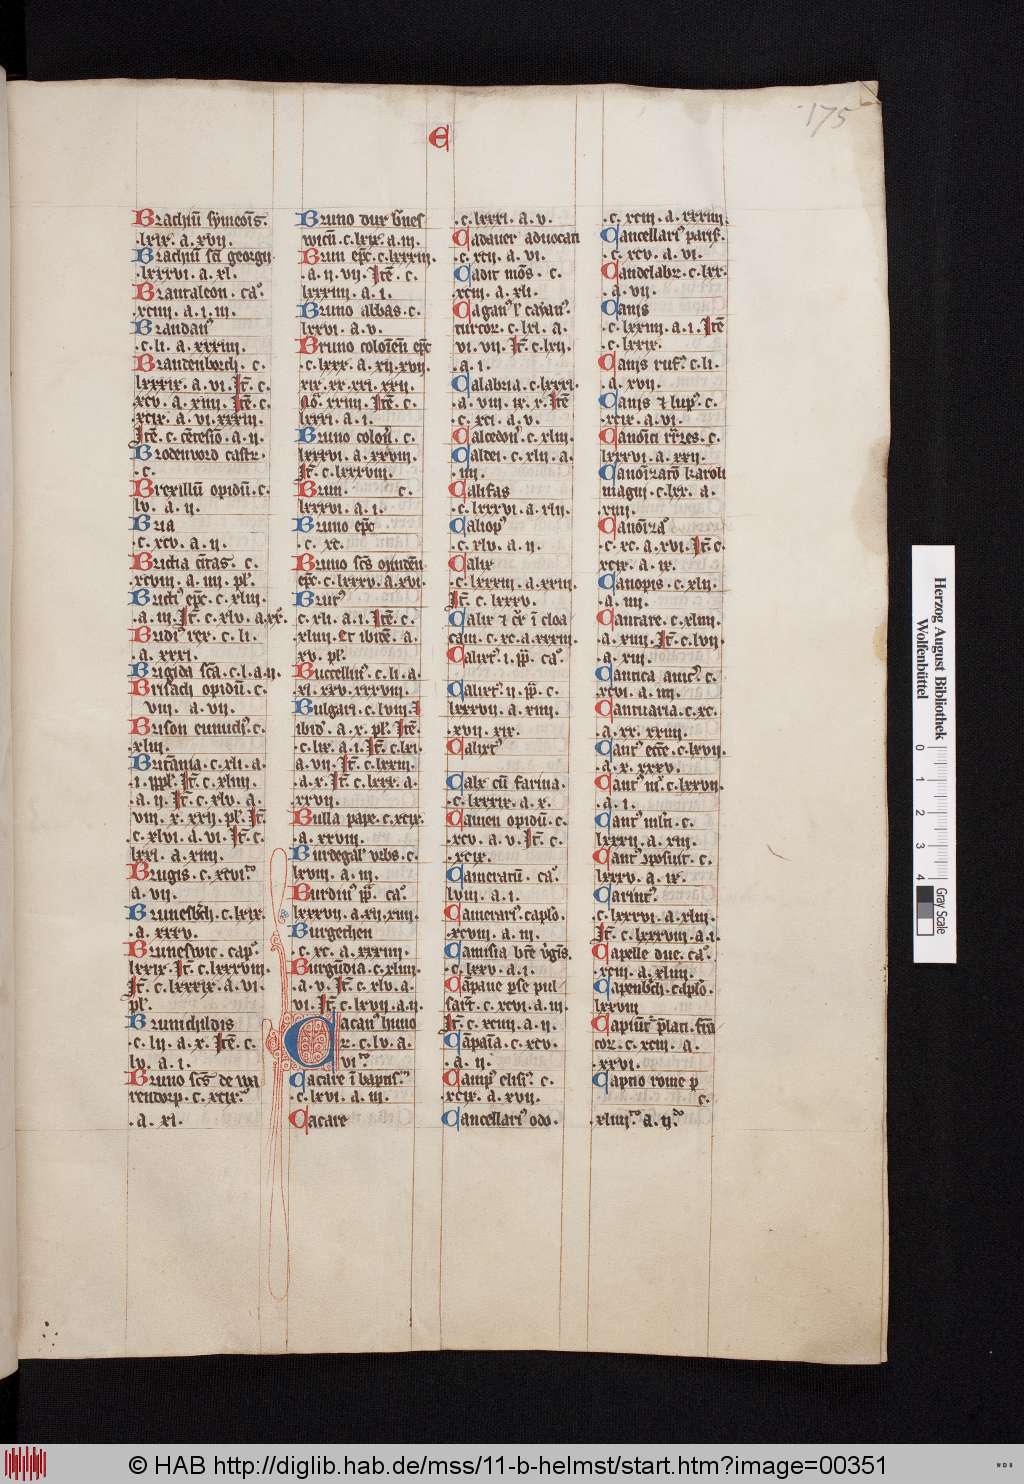 175
C
Brachiu͞ symeo͞is.
.lxix. a. xvii.
Brachiu͞ sc͞i georgii
.lxxxvi. a. xl.
Brantaleon. ca᷒.
.xciiii. a. i. iii.
Brandan᷒
.c. li. a. xxxiiii.
Brandenborch. c.
lxxxix. a. vi. It͞. c.
xcv. a. xiiii. Ite͞. c.
xcix. a. vi. xxxiii.
Ite͞. c. a. ii.
Brodenvord castr.
.c.
Brexillu͞ opidu͞. c.
lv. a. ii.
Bria
.c. xcv. a. ii.
c.
.xcviii. a. iiii. pl᷒.
Bricti᷒ ep͞c. c. xliii.
.a. iii. It͞. c. xlv. a. xx᷒.
Budi᷒ rex. c. li.
.a. xxxi.
Brigida sc͞a. c. l. a. ii.
Brisach opidu͞. c.
viii. a. vii.
Brison eunuch᷒. c.
.xliii.
Brita͞nia. c. xli. a.
.i. It͞. c. xliiii.
.a. ii. It͞. c. xlv. a.
viii. x. xxii. pl᷒. It͞.
c. xlvi. a. vi. It͞. c.
lxxi. a. xiiii.
Brugis. c. xcvi.
a. vii.
Brunesb͞ch. c. lxix.
.a. xxxv.
Bruneswic. cap᷒.
lxxix. It͞. c. lxxxviii.
It͞. c. lxxxix. a. vi.
pl᷒.
Brunichildis
.c. lii. a. x. Ite͞. c.
lv. a. i.
Bruno sc͞s de wa
rendorp. c. xcix.
.a. xi.
Bruno dux b͞nes
wicu͞. c. lxix. a. iii.
Brun ep͞c. c. lxxxiii.
.a. ii. vii. Ite͞. c.
lxxxiiii. a. i.
Bruno abbas. c.
lxxvi. a. v.
Bruno coloie͞n ep͞c
.c. lxxx. a. xii. xvii.
xix. xx. xxi. xxii.
xxiiii. Ite͞. c.
lxxxi. a. i.
Bruno colon᷒. c.
lxxxvi. a. xxviii.
It͞. c. lxxxviii.
Brun. c.
lxxxvi. a. i.
Bruno ep͞c
.c. xc.
Bruno sc͞s
ep͞c. c. lxxxv. a. xvi.
Brut᷒
c. xli. a. i. Ite͞. c.
xliiii. et ibide͞. a.
xv. pl᷒.
Buccellin᷒. c. li. a.
xi. xxv. xxxviii.
Bulgari. c. lviii. I
ibid᷒. a. x. pl᷒. Ite͞.
.c. lix. a. i. It͞. c. lxi.
a. vii. It͞. c. lxxiii.
.a. x. It͞. c. lxxx. a.
xxvii.
Bulla pape. c. xcix.
.a. xxviii.
Burdegal᷒ vrbs. c.
lxviii. a. iii.
Burdin᷒ pp͞. ca᷒.
lxxxvii. a. xii. xiiii.
Burgechen
.c. xc. a. xxxiiii.
Burgu͞dia. c. xliiii.
.a. v. It͞. c. xlv. a.
vi. It͞. c. lxvii. a. ii.
Cacan᷒ huno
r. c. lv. a.
vi.
Cacare i͞ baptis.
.c. lxvi. a. iii.
Cacare
.c. lxxxi. a. v.
Cadauer aduocati
.c. xcii. a. vi.
Cadit mo͞s. c.
xciii. a. xli.
Cagan᷒ l᷒ cayan᷒.
turcor. c. lxi. a.
vi. vii. It͞. c. lxii.
.a. i.
Calabria. c. lxxxi.
.a. viii. ix. x. Ite͞
.c. xci. a. v.
Calcedon᷒. c. xliii.
Caldei. c. xlii. a.
.iii.
Califas
.c. lxxxvi. a. xlii.
Caliop᷒
.c. xlv. a. ii.
Calix
.c. lxxxiii. a. xxiii.
It͞. c. lxxxv.
Calix ⁊ i͞ cloa
cam. c. xc. a. xxxiii.
Calixt᷒. i. pp͞. ca᷒.
Calixt᷒. ii. pp͞. c.
lxxxvii. a. xiiii.
.xvii. xix.
Calixt᷒
Calx cu͞ farina.
.c. lxxxix. a. x.
Camen opidu͞. c.
xcv. a. v. It͞. c.
.xcix.
Cameratu͞. ca᷒.
lviii. a. i.
Camerari᷒. caplo᷒.
.xcviii. a. iii.
Camisia b͞te v͞gis.
.c. lxxv. a. i.
Ca͞pane p͞se pul
sa͞t. c. xcvi. a. iii.
It͞. c. xciiii. a. ii.
Ca͞pa͞ia. c. xcv.
.a. ii.
Camp᷒ elis᷒. c.
xcix. a. xvii.
Cancellari᷒ odo.
.c. xciii. a. xxxiiii.
Cancellari᷒ paris᷒.
.c. xcv. a. vi.
Candelabr. c. lxx.
.a. vii.
Canis
.c. lxxiiii. a. i. Ite͞
.c. lxxix.
Canis ruf᷒. c. li.
.a. xvii.
Canis ⁊ lup᷒. c.
.xcix. a. vi.
Cano͞ici. c.
lxxxvi. a. xxii.
Cano͞izatio͞ karoli
magni. c. lxx. a.
.xiiii.
Cano͞iza᷒
.c. xc. a. xvi. It͞. c.
xcix. a. ix.
Canopis. c. xlii.
.a. iiii.
Cantare. c. xliiii.
.a. xiii. It͞. c. lvii.
.a. xiii.
Cantica antic᷒. c.
xcvi. a. iiii.
Cantuaria. c. xc.
.a. xx. xxiiii.
Cant᷒ ecc͞e. c. lxvii.
.a. x. xxxv.
Cant᷒. c. lxxvii.
.a. i.
Cant᷒. c.
lxxxii. a. xiii.
Cant᷒. c.
lxxxv. a. ix.
Carint᷒.
.c. lxxxvi. a. xliii.
It͞. c. lxxxviii. a. i.
Capelle duc. ca᷒.
.xciii. a. xliiii.
Capenb͞ch. caplo᷒.
lxxviii
Capiu͞t p͞lati. fra͞
cor. c. xciii. a.
.xxvi.
Captio rome p
c.
.xliiii. a. ii.
Herzog August Bibliothek
Wolfenbüttel
0 1 2 3 4
Gray Scale
© HAB http://diglib.hab.de/mss/11-b-helmst/start.htm?image=00351